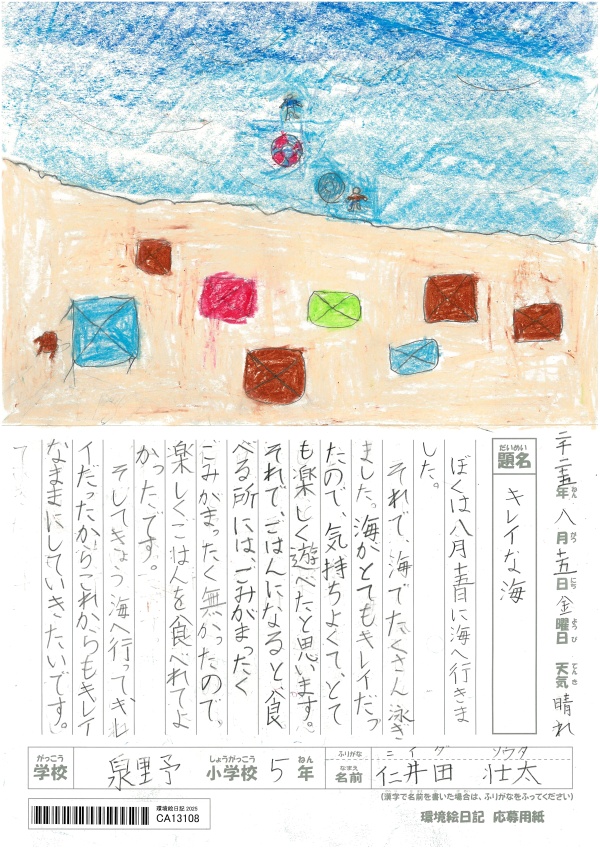 二千二五年 八月十五日 金曜日 天気 晴れ
ねん がつ にち ようび てんき
だいめい
題名 キレイな海
ぼくは八月十五日に海へ行きま
した。
それで、海でたくさん泳ぎ
ました。海がとてもキレイだっ
たので、気持ちよくて、とて
も楽しく遊べたと思います。
それで、ごはんになると、食
べる所には、ごみがまったく
ごみがまったく無かったので、
楽しくごはんを食べれてよ
かったです。
そしてきょう海へ行ってキレ
イだったからこれからもキレイ
なままにしていきたいです。
がっこう しょうがっこう ねん ふりがな ニイダ ソウタ
学校 泉野 小学校 5年 なまえ 名前 仁井田 壮太
(漢字で名前を書いた場合は、ふりがなをふってください)
環境絵日記 2025
CA13108
環境絵日記 応募用紙